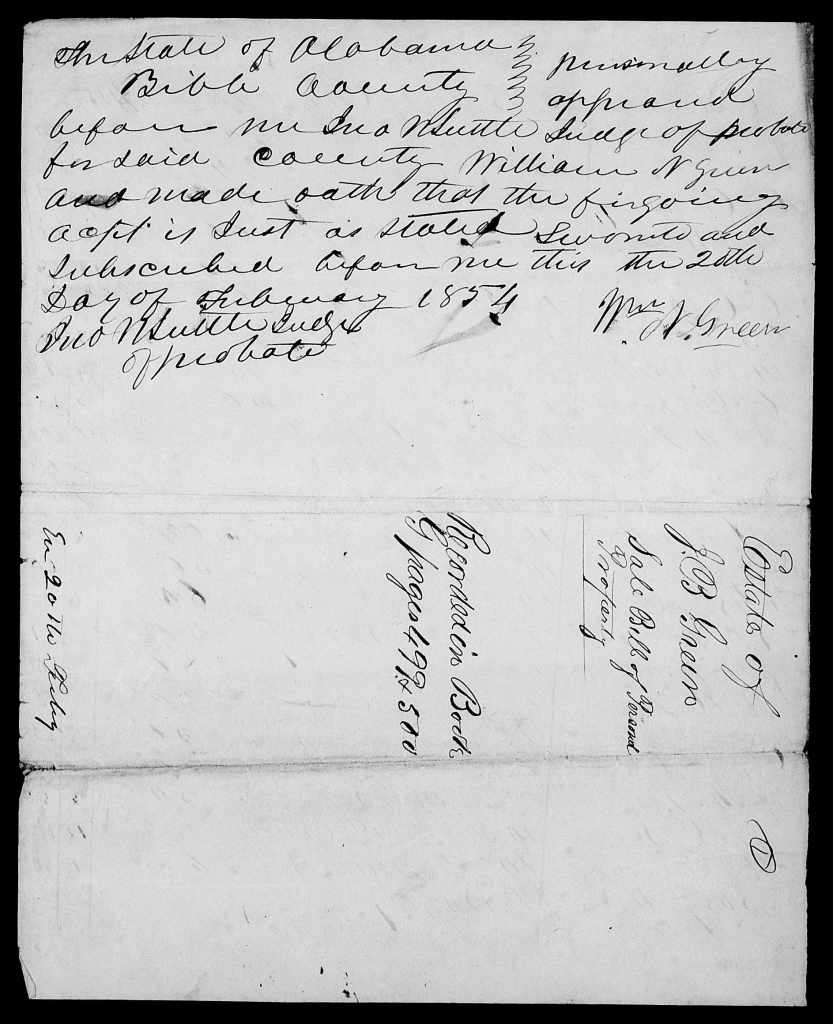 The State of Alabama
Bibb County
personally
appeard
before me Jno W Suttle Judge of probate
for said County William N Green
and made oath that the forgoing
acpt is Just as stated Sworn to and
Subscribed before me this the 20th
Day of February 1854
Jno W Suttle Judge
of probate
Wm N. Green
Estate of
J. B Green
Sale Bill of Personal
Property
Recorded in Book
G pages 499 & 500
En 20th Feby
1